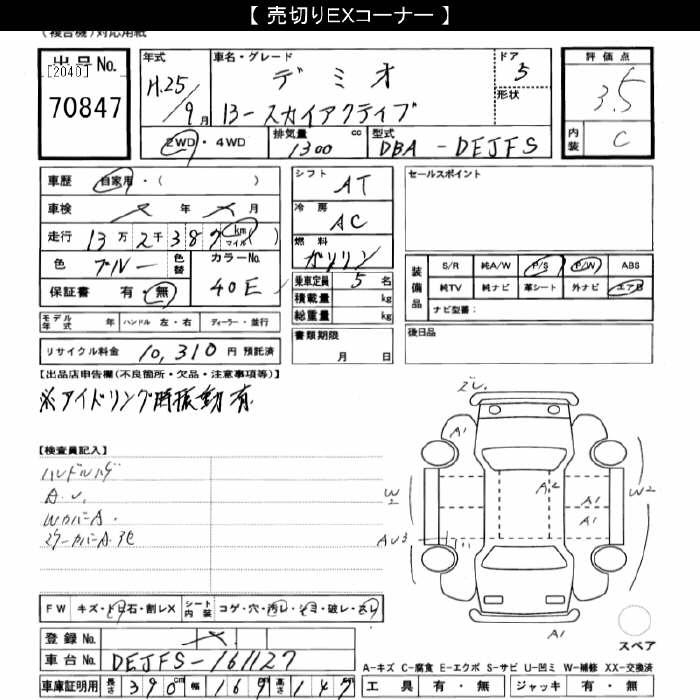 【 売切りEXコーナー 】
(複合機)対応用紙
出品No.
[2040]
70847
年式
H.25/9月
車名・グレード
デミオ
13-スカイアクティブ
ドア
5
形状
評価点
3.5
内装
C
2WD・4WD
排気量 1300 cc
型式 DBA-DEJFS
車歴 自家用・( )
車検 年 月
走行 13万2千387 km マイル( )
色 ブルー 色替 カラーNo. 40E
保証書 有・無
シフト AT
冷房 AC
燃料 ガソリン
乗車定員 5名
積載量 kg
総重量 kg
書類期限
月 日
セールスポイント
装備品
S/R 純A/W P/S P/W ABS
純TV 純ナビ 革シート 外ナビ エアB
ナビ型番:
後日品
モデル年式 年 ハンドル 左・右 ディーラー・並行
リサイクル料金 10,310 円 預託済
【出品店申告欄(不良箇所・欠品・注意事項等)】
※アイドリング時振動有
【検査員記入】
ハンドルハゲ
A.U.
WカバーA.
ステーカバーA.
A1
A2
A1
A1
W2
W2
AU3
A1
スペア
FW キズ・トビ石・割レX シート内装 コゲ・穴・汚レ・シミ・破レ・スレ
登録No.
車台No. DEJFS-161127
車庫証明用 長さ 390cm 幅 169cm 高さ 147cm
A-キズ C-腐食 E-エクボ S-サビ U-凹ミ W-補修 XX-交換済
工具 有・無 ジャッキ 有・無